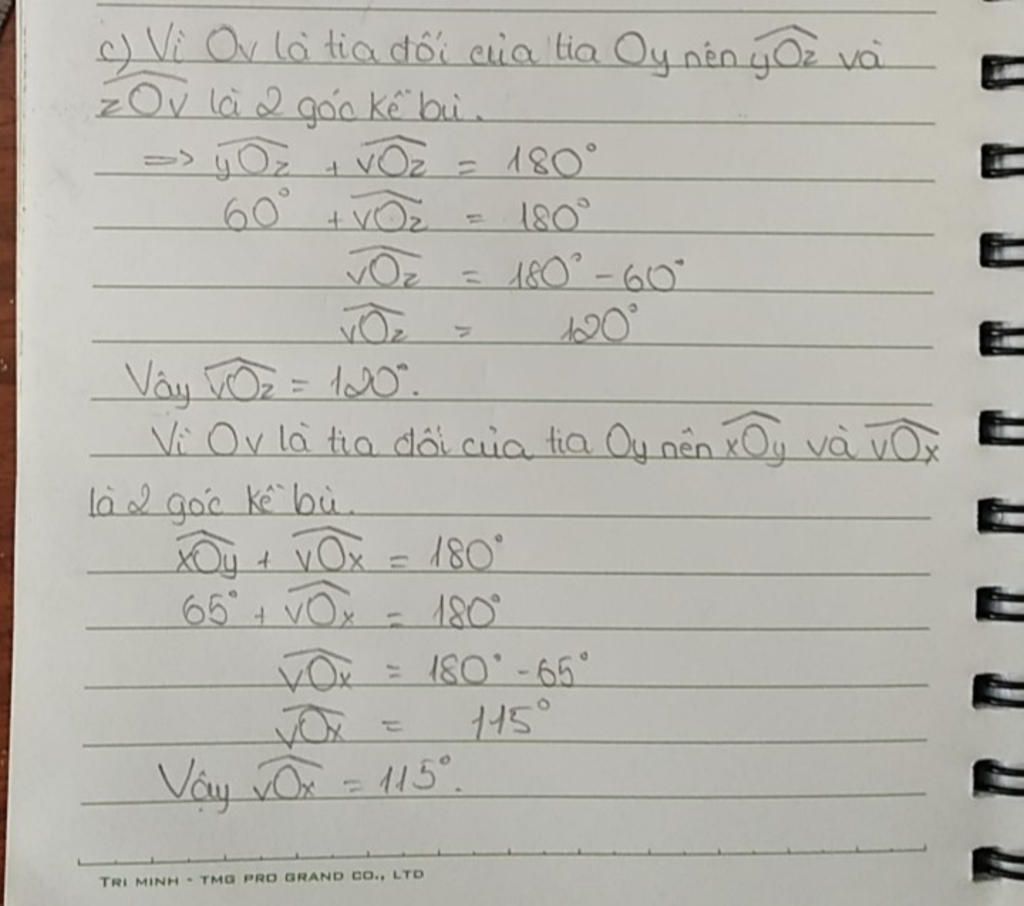 c) Vì Ov là tia đối của tia Oy nên yOz và
zOv là 2 góc kề bù.
=> yOz + vOz = 180°
60° + vOz = 180°
vOz = 180° - 60°
vOz = 120°
Vây vOz = 120°.
Vì Ov là tia đối của tia Oy nên xOy và vOx
là 2 góc kề bù.
xOy + vOx = 180°
65° + vOx = 180°
vOx = 180° - 65°
vOx = 115°
Vậy vOx = 115°.
TRI MINH - TMG PRO GRAND CO., LTD